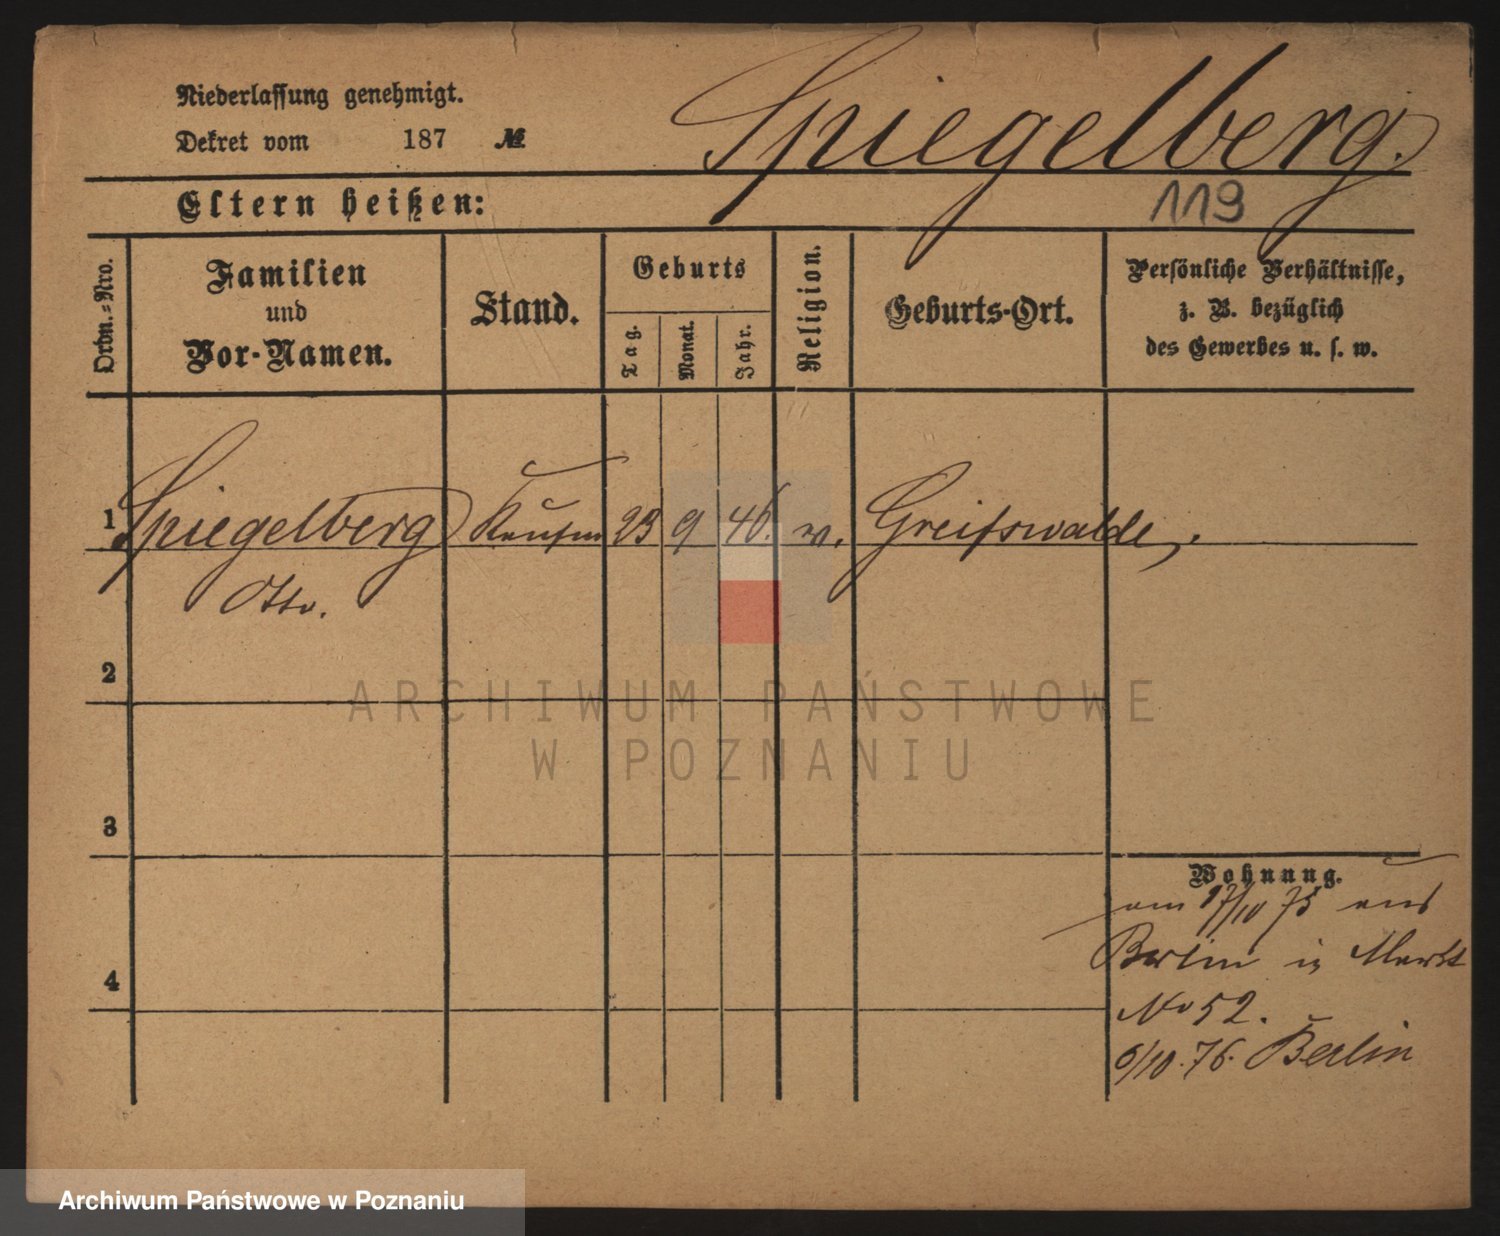 Niederlassung genehmigt.
Dekret vom 187 №
Spiegelberg.
Eltern heißen:
119
Ordn.-Nro.
Familien
und
Vor-Namen.
Stand.
Geburts
Tag.
Monat.
Jahr.
Religion.
Geburts-Ort.
Persönliche Verhältnisse,
z. B. bezüglich
des Gewerbes u. s. w.
1 Spiegelberg Kaufm 23 9 46. Greifswalde,.
Otto.
2
ARCHIWUM PAŃSTWOWE
W POZNANIU
3
Wohnung.
am 17/10 75 aus
Berlin in Markt
4
No 52.
6/10.76. Berlin
Archiwum Państwowe w Poznaniu